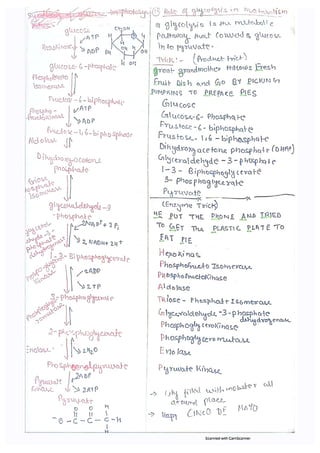 glucose
ATP
ADP
CH2OH
Hexokinase
glucose-6-phosphate
Phosphohexose
Isomerase
fructose-6-biphosphate
ATP
ADP
fructose-1,6-biphosphate
Aldolase
Dihydroxyacetone
phosphate
Isomerase
glyceraldehyde-3
-phosphate
2 NADH+2H+
1-3-Biphosphoglycerate
2ADP
3-phosphoglycerate
2-phosphoglycerate
Enolase
2H2O
Phosphoenolpyruvate
2ADP
2ATP
Pyruvate
Kinase
Pyruvate
Role of glycolysis in metabolism
a glycolysis is the metabolic
Pathway that converts glucose
into pyruvate.
Trick:- (Product trick)
great grandmother
Fresh
Fruit Dish and GO BY PICKING
PUMPKINS TO PREPARE PIES
GLUCOSE
Glucose-6-Phosphate
Fructose-6-biphosphate
Fructose-1,6-biphosphate
Dihydroxyacetone phosphate (DHAP)
Glyceraldehyde-3-phosphate
1-3-Biphosphoglycerate
3-Phosphoglycerate
Pyruvate
(Enzyme Trick)
HE PUT THE PHONE AND TRIED
TO GET THE PLASTIC PLATE TO
EAT PIE
Hexokinas
Phosphofructo Isomerase
Phosphofructokinase
Aldolase
TRiose-Phosphate Isomerase
Glyceraldehyde-3-phosphate
dehydrogenase
PhosphoglyceroKinase
Phosphoglyceromutase
Enolase
Pyruvate Kinase
city filled with
all
around place
CINCO DE MAYO
Scanned with CamScanner